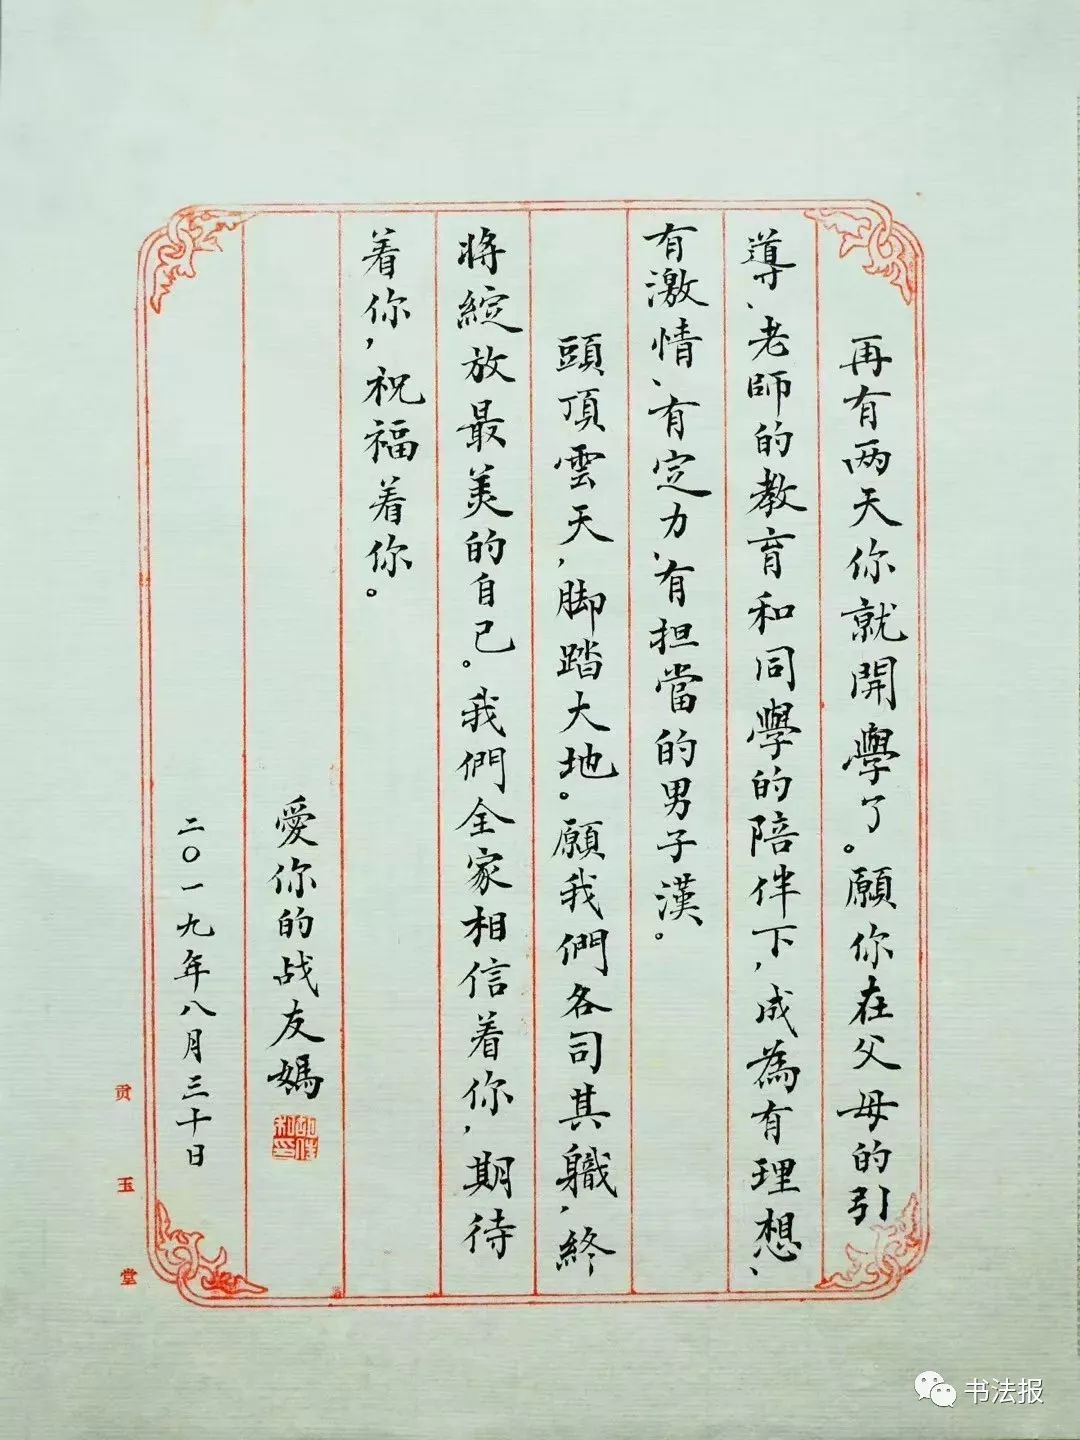 再有两天你就開學了。願你在父母的引
導、老師的教育和同學的陪伴下，成為有理想、
有激情、有定力、有担當的男子漢。
頭頂雲天，脚踏大地。願我們各司其職，終
將綻放最美的自己。我們全家相信着你，期待
着你，祝福着你。
愛你的战友媽
二〇一九年八月三十日
贡玉堂
书法报